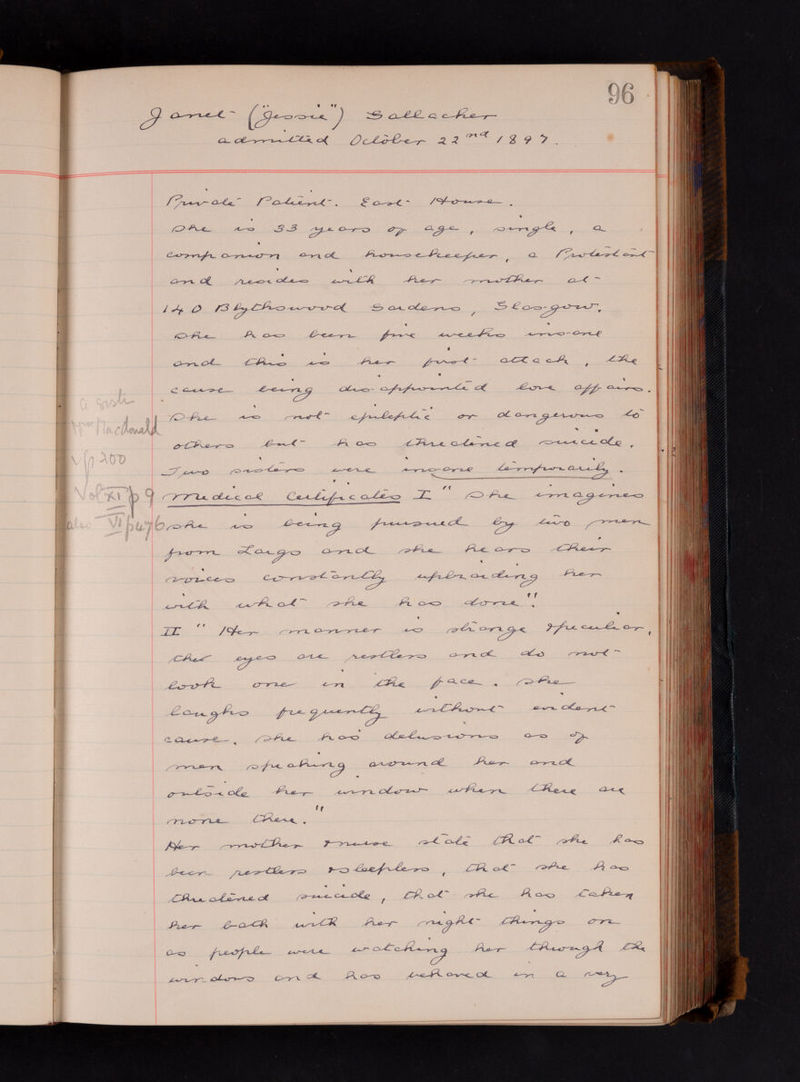 96
Janet ("Jessie") Gallacher
admitted October 22nd 1897.
Private Patient. East House.
She is 33 years of age, single, a
companion and housekeeper, a Protestant
and resides with her mother at
140 Blythswood Gardens, Glasgow.
She has been five weeks insane
and this is her first attack, the
cause being disappointed love affairs.
She is not epileptic or dangerous to
others but has threatened suicide.
Two sisters were insane temporarily.
a sister
Macdonald
v p 200
Vol XI p 9
also VI p 476
Medical Certificates I " She imagines
she is being pursued by two men
from Largo and she hears their
voices constantly upbraiding her
with what she has done".
II " Her manner is strange & peculiar,
her eyes are restless and do not
look one in the face. She
laughs frequently without evident
cause. She has delusions as of
men speaking around her and
outside her window when there are
none there."
Her mother & nurse state that she has
been restless & sleepless, that she has
threatened suicide, that she has taken
her bath with her night things on
as people were watching her through the
windows and has behaved in a very